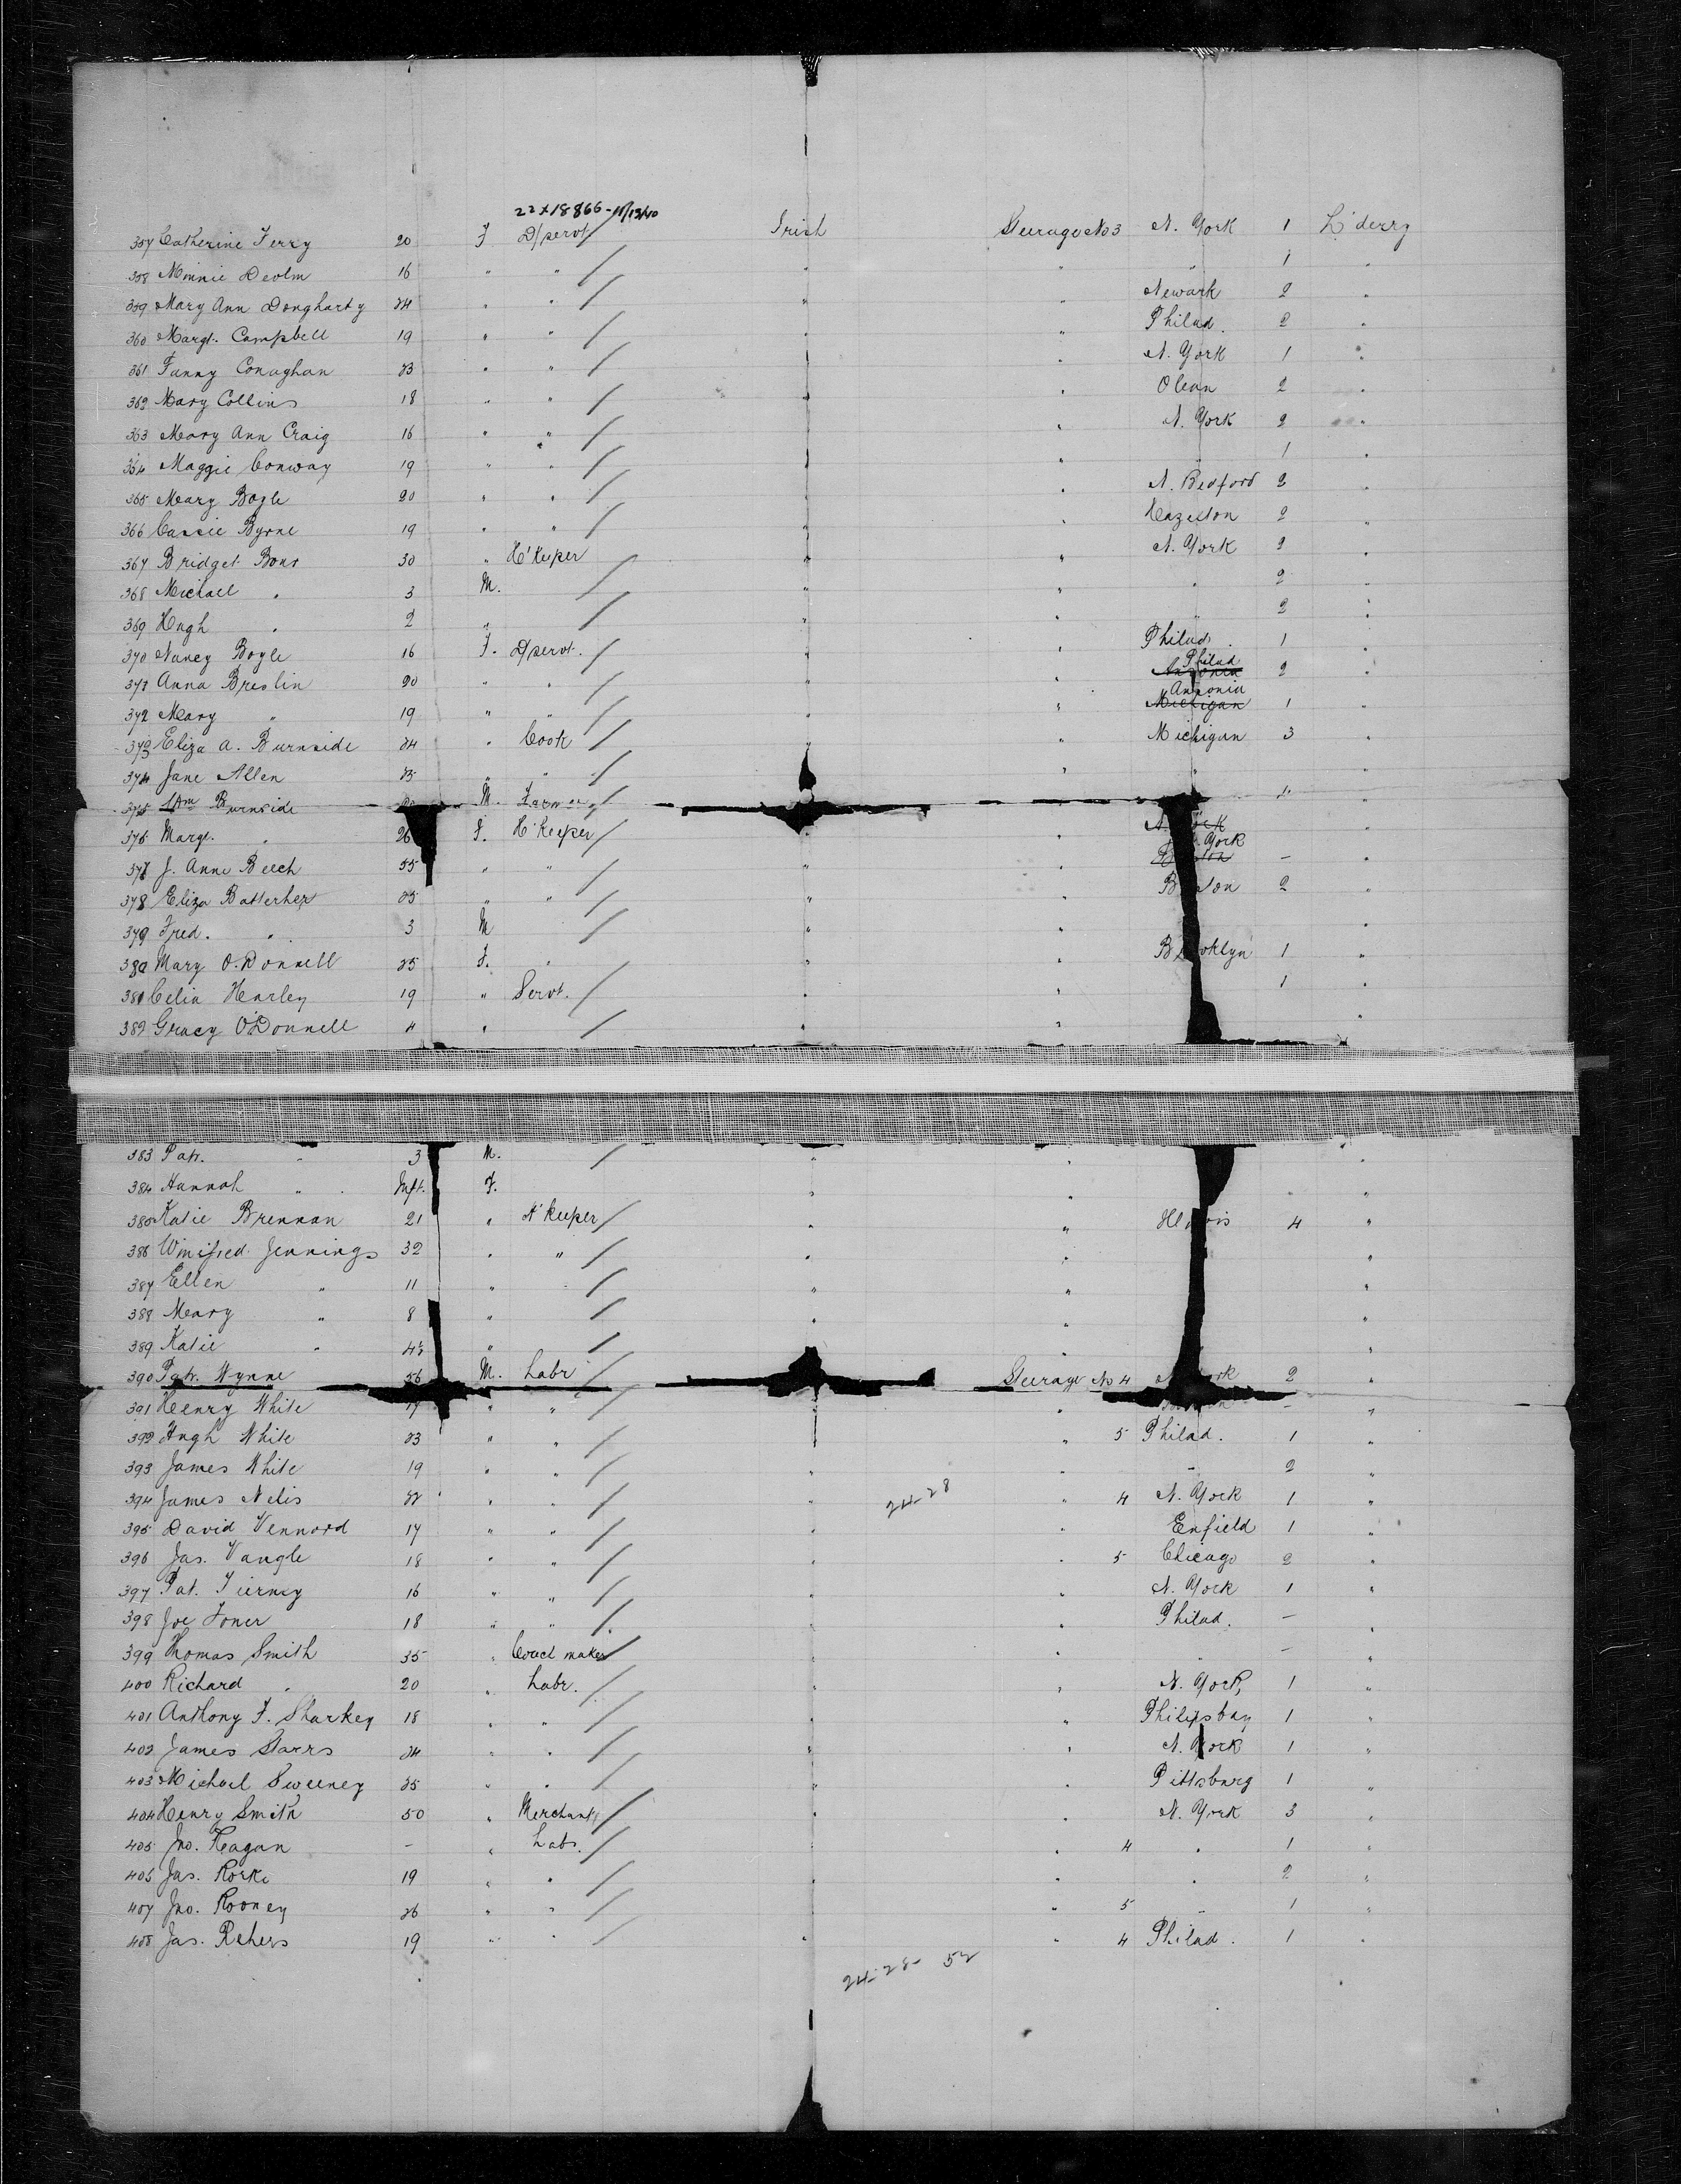 22x18866-11/13/40
357 Catherine Ferry 20 F D/servt Irish Steerage No 3 N. York 1 L'derry
358 Minnie Devlin 16 " " " " " 1 "
359 Mary Ann Dougharty 24 " " " " Newark 2 "
360 Margt. Campbell 19 " " " " Philad. 2 "
361 Fanny Conaghan 23 " " " " N. York 1 "
362 Mary Collins 18 " " " " Olean 2 "
363 Mary Ann Craig 16 " " " " N. York 2 "
364 Maggie Conway 19 " " " " " 1 "
365 Mary Bogle 20 " " " " N. Bedford 2 "
366 Cassie Byrne 19 " " " " Hazelton 2 "
367 Bridget Boner 30 " H'Keeper " " N. York 2 "
368 Michael " 3 M. " " " 2 "
369 Hugh " 2 " " " " 2 "
370 Nancy Boyle 16 F. D/servt. " " Philad. 1 "
371 Anna Breslin 20 " " " " Ansonia Philad 2 "
372 Mary " 19 " " " " Michigan Ansonia 1 "
373 Eliza A. Burnside 24 " Cook " " Michigan 3 "
374 Jane Allen 23 " " " " " "
375 Wm Burnside M. Farmer " "
376 Margt. " 26 F. H'Keeper " N. York "
377 J. Anne Beech 55 " " " " Boston York - "
378 Eliza Batterher 35 " " " " Boston 2 "
379 Fred. " 3 M " " "
380 Mary O'Donnell 25 F. " " " Brooklyn 1 "
381 Celia Harley 19 " Servt. " " 1 "
382 Gracy O'Donnell 4 " " " "
383 Patk. " 3 M. " " "
384 Hannah " Inft. F. " " " "
385 Katie Brennan 21 " H'Keeper " " Illinois 4 "
386 Winifred Jennings 32 " " " " "
387 Ellen " 11 " " " " "
388 Mary " 8 " " " "
389 Katie " 4½ " " "
390 Patk. Wynne 56 M. Labr Steerage No 4 N. York 2 "
391 Henry White 19 " " " " - "
392 Hugh White 23 " " " 5 Philad. 1 "
393 James White 19 " " " " " 2 "
394 James Nelis 22 " " " 24-28 " 4 N. York 1 "
395 David Vennord 17 " " " " Enfield 1 "
396 Jas. Vaugle 18 " " " " 5 Chicago 2 "
397 Pat. Tierney 16 " " " " N. York 1 "
398 Joe Toner 18 " " " " Philad. - "
399 Thomas Smith 35 " Coach maker " " - "
400 Richard " 20 " Labr. " " N. York, 1 "
401 Anthony F. Sharkey 18 " " " " Philipsbay 1 "
402 James Starrs 24 " " " " N. York 1 "
403 Michael Sweeney 25 " " " " Pittsburg 1 "
404 Henry Smith 50 " Merchant " " N. York 3 "
405 Jno. Keagan - " Labr. " " 4 " 1 "
406 Jas. Rorke 19 " " " " " 2 "
407 Jno. Rooney 26 " " " 5 " 1 "
408 Jas. Rehers 19 " " " " 4 Philad. 1 "
24-28- 52